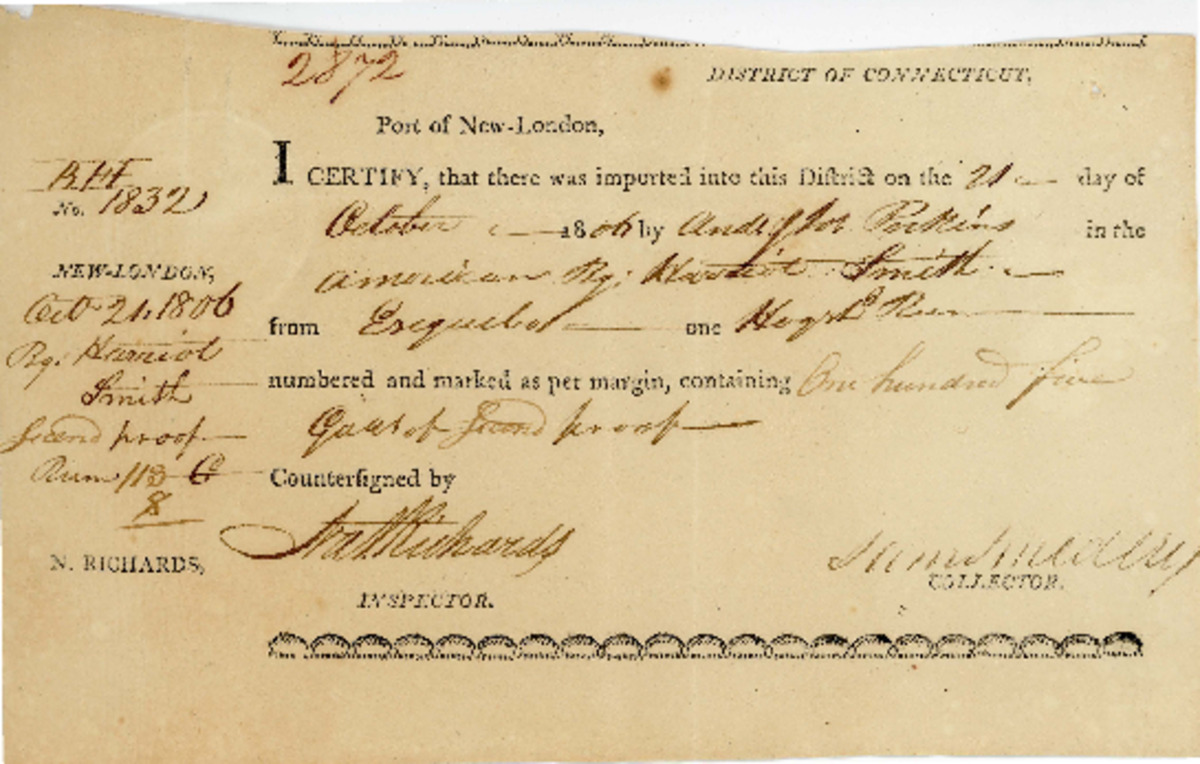 2872
DISTRICT OF CONNECTICUT,
Port of New-London,
I CERTIFY, that there was imported into this District on the 21 day of
October 1806 by And Perkins in the
American Bg. Harriot Smith
from Esequebo one Hogsd Rum
numbered and marked as per margin, containing One hundred five
Galls of Second proof
Countersigned by
Nat Richards
INSPECTOR.
COLLECTOR.
No. 1832
NEW-LONDON,
Oct. 21, 1806
Bg. Harriot
Smith
Second proof
Rum 113
8
N. RICHARDS,